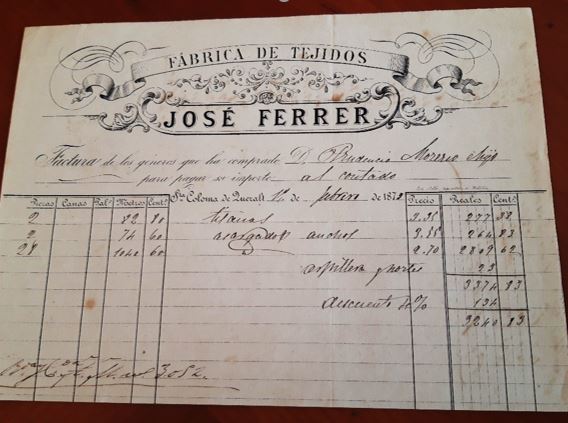 FÁBRICA DE TEJIDOS
JOSÉ FERRER
Factura de los géneros que ha comprado D. Prudencio Moreno Hijo
para pagar su importe al contado
Sta. Coloma de Queralt 12 de febrero de 1872
Piezas Canas Pal.s Metros Cent.s Precio Reales Cent.s
2 82 80 3.35 277 38
2 74 60 asargados anchos 3.55 264 83
28 1040 60 2.70 2809 62
arpillera y portes 23
3374 83
descuento % 134
3240 83